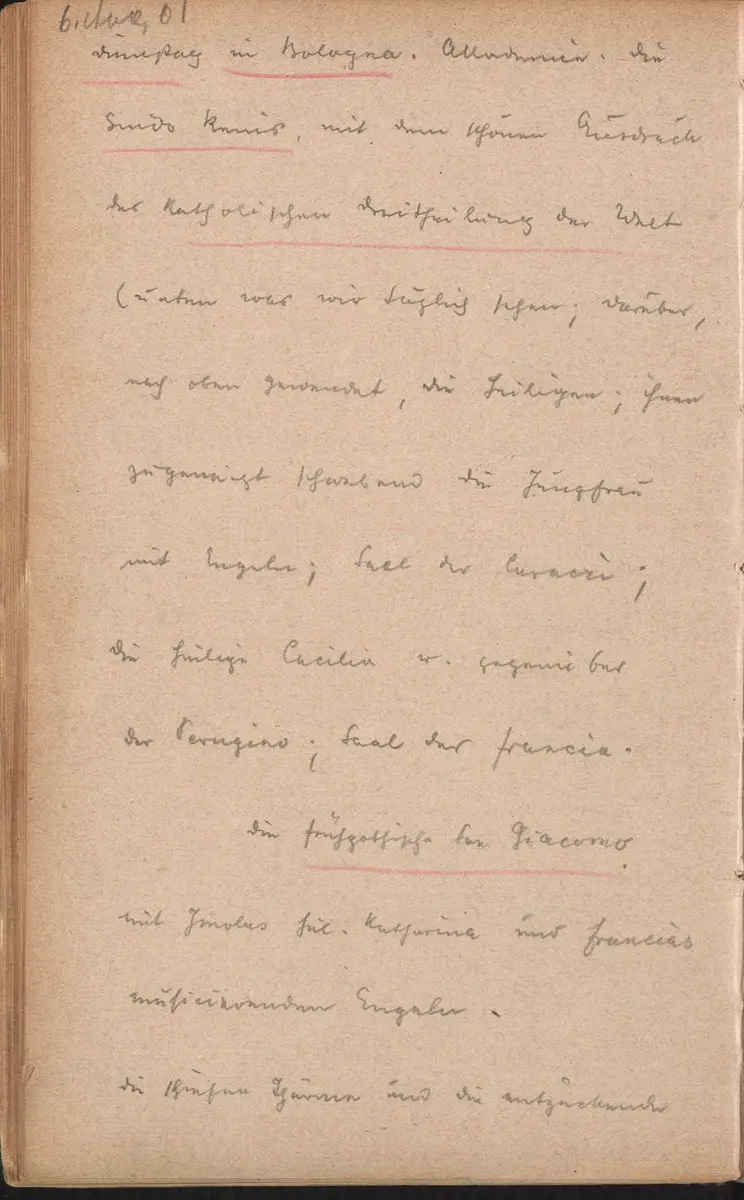 6. Aug. 01
Dinstag in Bologna. Akademie. die
Guido Renis, mit dem schönen Ausdruck
der katholischen Dreitheilung der Welt
(unten was wir täglich sehen; darüber,
nach oben gewendet, die Heiligen; ihnen
zugeneigt schwebend die Jungfrau
mit Engeln; Saal der Caracci;
die heilige Cecilia u. gegenüber
der Perugino; Saal des Francia.
die frühgothische San Giacomo
mit Imolas heil. Katharina und Francias
musicirenden Engeln.
die schiefen Thürme und die entzückende